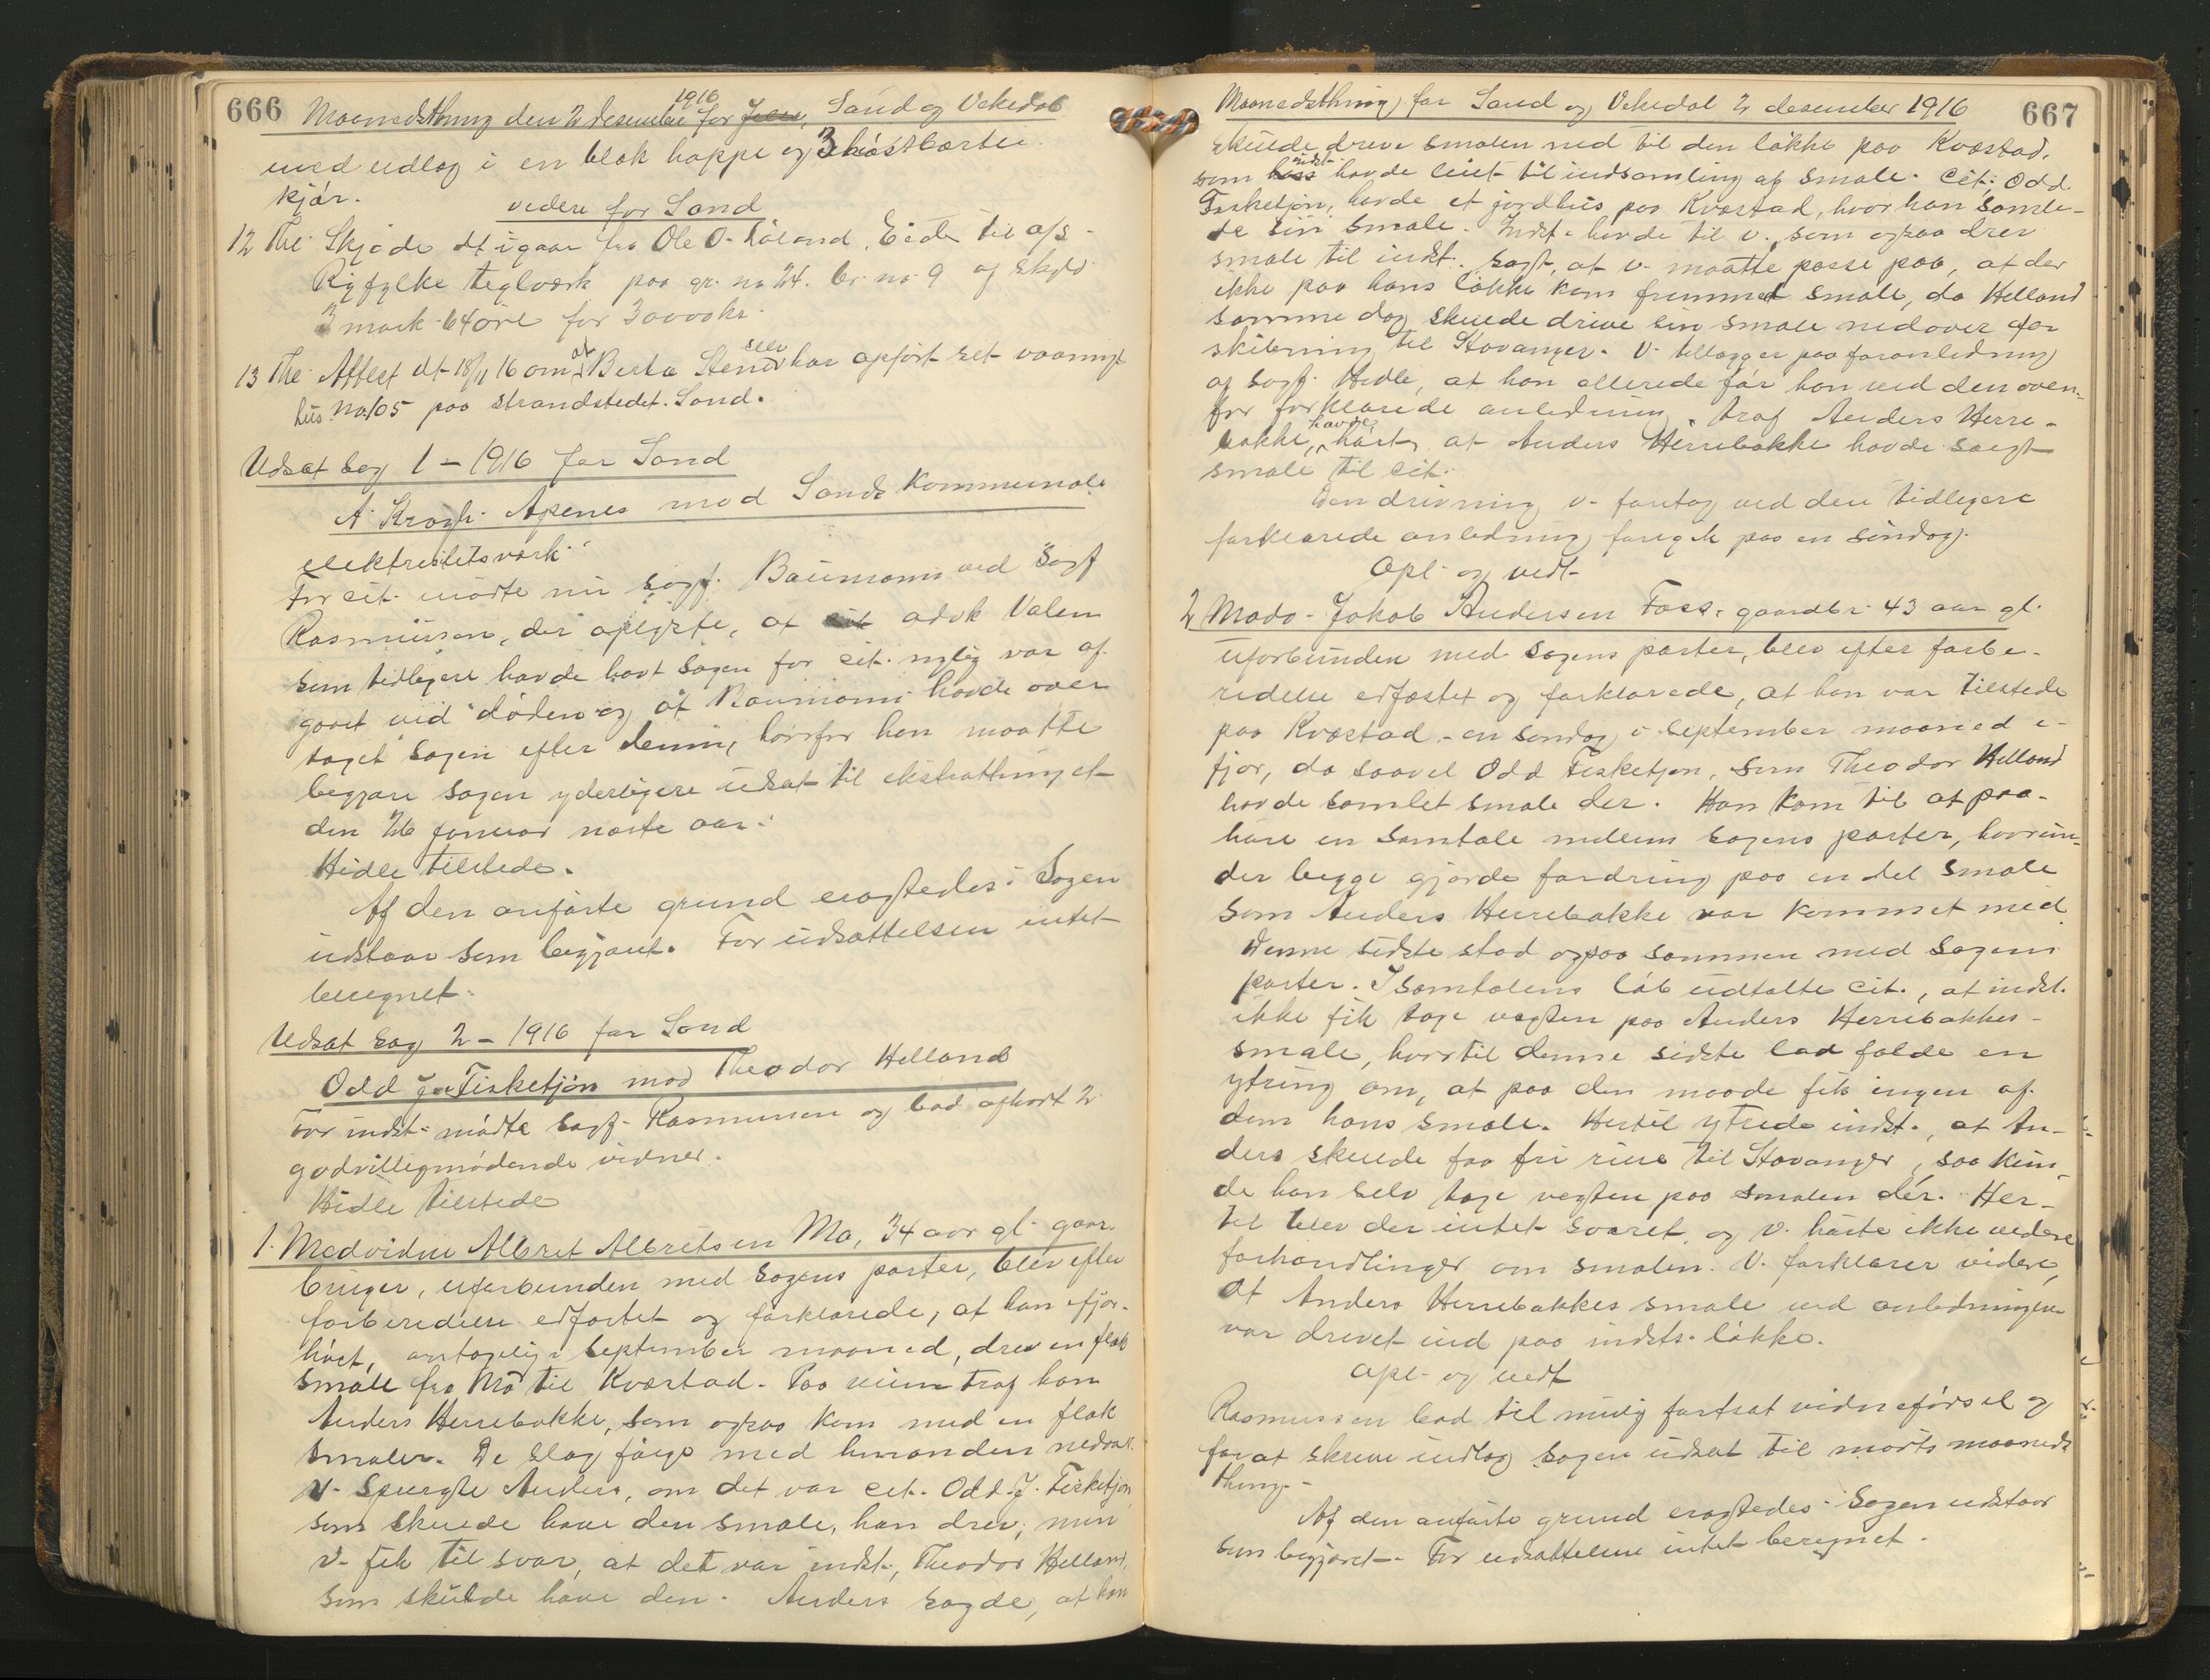 666 Maanedsthing den 2 desember 1916 for Jelse, Sand og Vikedal
med udlæg i en blak hoppe og 3 høstbærte
kjør.
videre for Sand
12 Thl. Skjøde dt igaar fra Ole O. Håland, Eide til a/s
Ryfylke teglværk paa gr. no 24. br. no 9 og skyld
3 mark 64 øre for 30000 kr.
13 Thl. Attest dt 18/11 16 om at Berta Stene selv har opført sit vaanings
hus No 105 paa strandstedet Sand.
Udsat sag 1 - 1916 for Sand
A. Krogh. Apenes mod Sands Kommunale
elektricitetsværk.
For cit. mødte nu sagf. Baumann ved sagf
Rasmussen, der oplyste, at cit advk Valen
som tidligere havde havt sagen for cit. nylig var af-
gaaet ved døden og at Baumann havde over
taget sagen efter denne, hvorfor han maatte
begjære sagen yderligere udsat til ekstrathinget
den 26 januar næste aar.
Hidle tilstede.
Af den anførte grund eragtedes: Sagen
udstaar som begjæret. For udsættelsen intet
beregnet.
Udsat sag 2 - 1916 for Sand
Odd J. Fisketjøn mod Theodor Helland
For indst. mødte sagf. Rasmussen og bad afhørt 2
godvilligmødende vidner.
Hidle tilstede
1. Modvidne Albret Albretsen Mo, 34 aar gl. gaar-
bruger, uforbunden med sagens parter, blev efter
forberedelse edfæstet og forklarede, at han ifjor-
høst, antagelig i september maaned, drev en flok
smale fra Mo til Kvæstad. Paa veien traf han
Anders Herrebakke, som ogsaa kom med en flok
smaler. De slog følge med hinanden nedover.
V. spurgte Anders, om det var cit. Odd J. Fisketjøn,
som skulde have den smale, han drev, men
V. fik til svar, at det var indst., Theodor Helland,
som skulde have den. Anders sagde, at han
Maanedsthing for Sand og Vikedal 2 desember 1916 667
skulde drive smalen ned til den løkke paa Kvæstad,
som hans indst. havde leiet til indsamling af smale. Cit. Odd
Fisketjøn, havde et jordhus paa Kvæstad, hvor han samle-
de sin smale. Indst. havde til v., som ogsaa drev
smale til indst. sagt, at v. maatte passe paa, at der
ikke paa hans løkke kom fremmed smale, da Helland
samme dag skulde drive sin smale nedover for
skibning til Stavanger. V. tillægger paa foranledning
af sagf. Hidle, at han allerede før han ved den oven-
for forklarede anledning traf Anders Herre-
bakke, havde hørt, at Anders Herrebakke havde solgt
smale til cit.
Den drivning v. foretog ved den tidligere
forklarede anledning foregik paa en søndag.
Opl. og vedt.
2 Modv. Jakob Andersen Foss, gaardbr. 43 aar gl.
uforbunden med sagens parter, blev efter forbe-
redelse edfæstet og forklarede, at han var tilstede
paa Kvæstad en søndag i september maaned i
fjor, da saavel Odd Fisketjøn, som Theodor Helland
havde samlet smale der. Han kom til at paa-
høre en samtale mellem sagens parter, hvorun-
der begge gjorde fordring paa en del smale
som Anders Herrebakke var kommet med.
Denne sidste stod ogsaa sammen med sagens
parter. I samtalens løb udtalte cit., at indst.
ikke fik tage vegten paa Anders Herrebakkes
smale, hvortil denne sidste lod falde en
ytring om, at paa den maade fik ingen af
dem hans smale. Hertil ytrede indst., at An-
ders skulde faa fri reise til Stavanger, saa kun-
de han selv tage vegten paa smalen dér. Her-
til blev der intet svaret, og v. hørte ikke videre
forhandlinger om smalen. V. forklarer videre,
at Anders Herrebakkes smale ved anledningen
var drevet ind paa indsts. løkke.
Opl. og vedt
Rasmussen bad til mulig fortsat vidneførsel og
for at skrive indlæg sagen udsat til marts maaneds
thing.
Af den anførte grund eragtedes: Sagen udstaar
som begjæret. For udsættelsen intet beregnet.